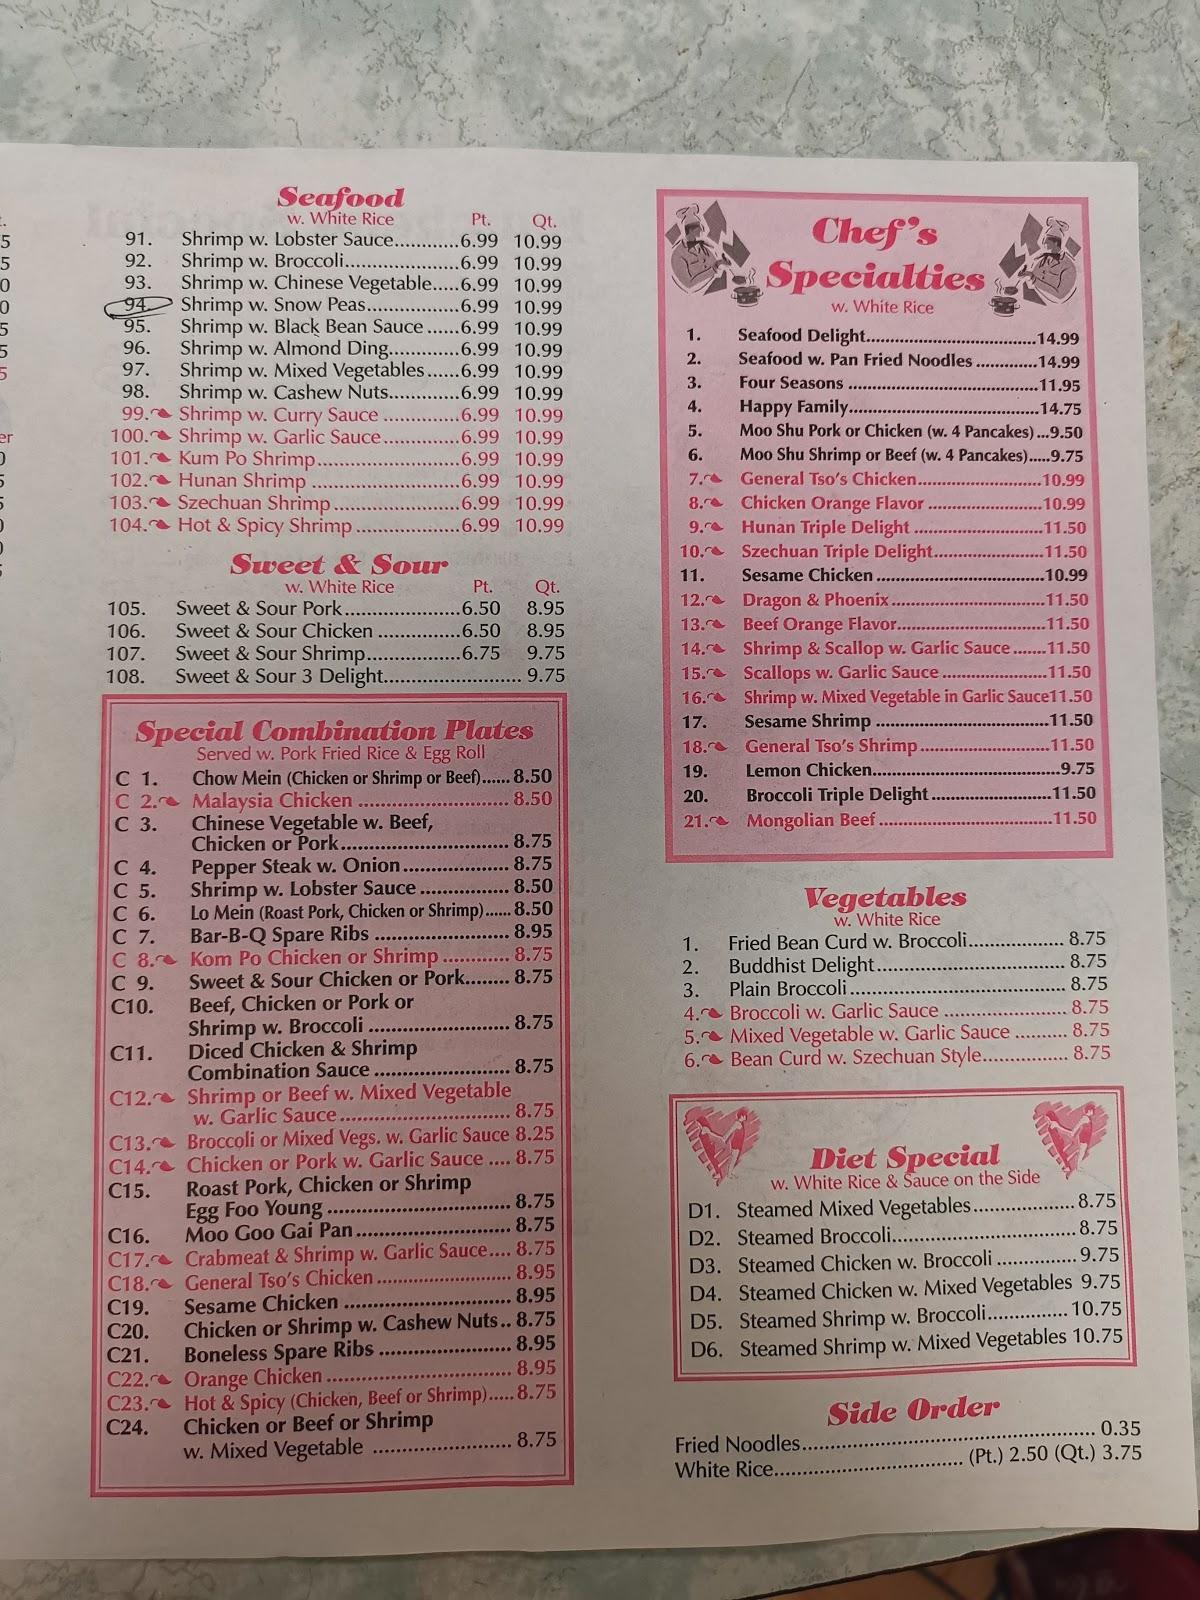 Seafood
w. White Rice Pt. Qt.
91. Shrimp w. Lobster Sauce............6.99 10.99
92. Shrimp w. Broccoli....................6.99 10.99
93. Shrimp w. Chinese Vegetable.....6.99 10.99
94. Shrimp w. Snow Peas................6.99 10.99
95. Shrimp w. Black Bean Sauce ......6.99 10.99
96. Shrimp w. Almond Ding............6.99 10.99
97. Shrimp w. Mixed Vegetables ......6.99 10.99
98. Shrimp w. Cashew Nuts............6.99 10.99
99. Shrimp w. Curry Sauce .............6.99 10.99
100. Shrimp w. Garlic Sauce.............6.99 10.99
101. Kum Po Shrimp........................6.99 10.99
102. Hunan Shrimp .........................6.99 10.99
103. Szechuan Shrimp ......................6.99 10.99
104. Hot & Spicy Shrimp ..................6.99 10.99
Sweet & Sour
w. White Rice Pt. Qt.
105. Sweet & Sour Pork....................6.50 8.95
106. Sweet & Sour Chicken ..............6.50 8.95
107. Sweet & Sour Shrimp................6.75 9.75
108. Sweet & Sour 3 Delight........................ 9.75
Special Combination Plates
Served w. Pork Fried Rice & Egg Roll
C 1. Chow Mein (Chicken or Shrimp or Beef)...... 8.50
C 2. Malaysia Chicken .................................. 8.50
C 3. Chinese Vegetable w. Beef,
Chicken or Pork..................................... 8.75
C 4. Pepper Steak w. Onion........................ 8.75
C 5. Shrimp w. Lobster Sauce ..................... 8.50
C 6. Lo Mein (Roast Pork, Chicken or Shrimp)...... 8.50
C 7. Bar-B-Q Spare Ribs ................................ 8.95
C 8. Kom Po Chicken or Shrimp ................. 8.75
C 9. Sweet & Sour Chicken or Pork........ 8.75
C10. Beef, Chicken or Pork or
Shrimp w. Broccoli ............................... 8.75
C11. Diced Chicken & Shrimp
Combination Sauce ............................... 8.75
C12. Shrimp or Beef w. Mixed Vegetable
w. Garlic Sauce ........................................ 8.75
C13. Broccoli or Mixed Vegs. w. Garlic Sauce 8.25
C14. Chicken or Pork w. Garlic Sauce .... 8.75
C15. Roast Pork, Chicken or Shrimp
Egg Foo Young ........................................ 8.75
C16. Moo Goo Gai Pan................................... 8.75
C17. Crabmeat & Shrimp w. Garlic Sauce.... 8.75
C18. General Tso's Chicken .............................. 8.95
C19. Sesame Chicken ...................................... 8.95
C20. Chicken or Shrimp w. Cashew Nuts.. 8.75
C21. Boneless Spare Ribs ................................ 8.95
C22. Orange Chicken ....................................... 8.95
C23. Hot & Spicy (Chicken, Beef or Shrimp)..... 8.75
C24. Chicken or Beef or Shrimp
w. Mixed Vegetable ................................ 8.75
Chef's
Specialties
w. White Rice
1. Seafood Delight.......................................14.99
2. Seafood w. Pan Fried Noodles .............14.99
3. Four Seasons ...........................................11.95
4. Happy Family..........................................14.75
5. Moo Shu Pork or Chicken (w. 4 Pancakes) ...9.50
6. Moo Shu Shrimp or Beef (w. 4 Pancakes).....9.75
7. General Tso's Chicken............................10.99
8. Chicken Orange Flavor ..........................10.99
9. Hunan Triple Delight .............................11.50
10. Szechuan Triple Delight.........................11.50
11. Sesame Chicken ......................................10.99
12. Dragon & Phoenix...................................11.50
13. Beef Orange Flavor..................................11.50
14. Shrimp & Scallop w. Garlic Sauce .......11.50
15. Scallops w. Garlic Sauce ........................11.50
16. Shrimp w. Mixed Vegetable in Garlic Sauce11.50
17. Sesame Shrimp .......................................11.50
18. General Tso's Shrimp..............................11.50
19. Lemon Chicken..........................................9.75
20. Broccoli Triple Delight ............................11.50
21. Mongolian Beef .......................................11.50
Vegetables
w. White Rice
1. Fried Bean Curd w. Broccoli................. 8.75
2. Buddhist Delight.................................. 8.75
3. Plain Broccoli ....................................... 8.75
4. Broccoli w. Garlic Sauce ...................... 8.75
5. Mixed Vegetable w. Garlic Sauce .......... 8.75
6. Bean Curd w. Szechuan Style............... 8.75
Diet Special
w. White Rice & Sauce on the Side
D1. Steamed Mixed Vegetables................... 8.75
D2. Steamed Broccoli.................................. 8.75
D3. Steamed Chicken w. Broccoli ............... 9.75
D4. Steamed Chicken w. Mixed Vegetables 9.75
D5. Steamed Shrimp w. Broccoli............... 10.75
D6. Steamed Shrimp w. Mixed Vegetables 10.75
Side Order
Fried Noodles...................................................... 0.35
White Rice.................................. (Pt.) 2.50 (Qt.) 3.75